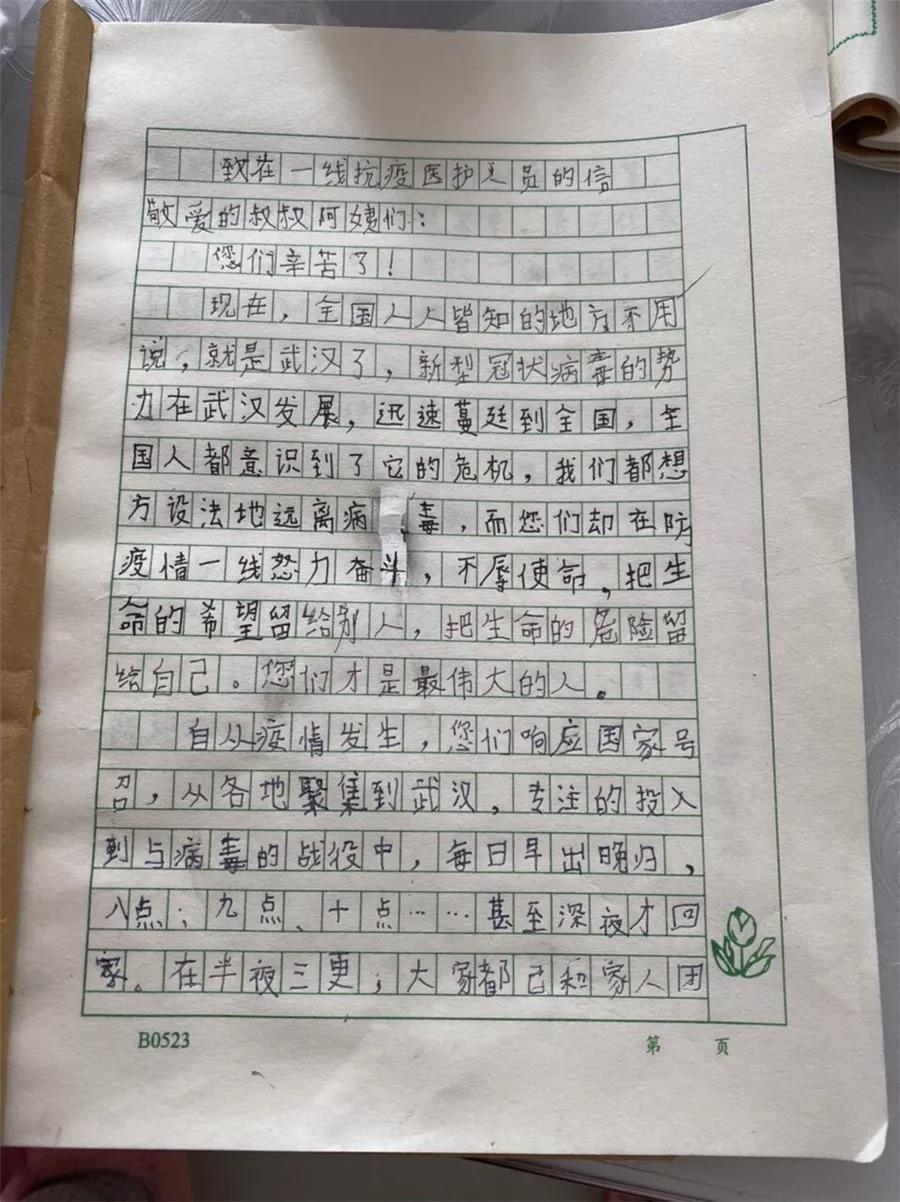 致在一线抗疫医护人员的信
敬爱的叔叔阿姨们：
您们辛苦了！
现在，全国人人皆知的地方不用
说，就是武汉了，新型冠状病毒的势
力在武汉发展，迅速蔓廷到全国，全
国人都意识到了它的危机，我们都想
方设法地远离病毒，而您们却在防
疫情一线怒力奋斗，不辱使命，把生
命的希望留给别人，把生命的危险留
给自己。您们才是最伟大的人。
自从疫情发生，您们响应国家号
召，从各地聚集到武汉，专注的投入
到与病毒的战役中，每日早出晚归，
八点；九点、十点……甚至深夜才回
家。在半夜三更；大家都已和家人团
B0523
第 页